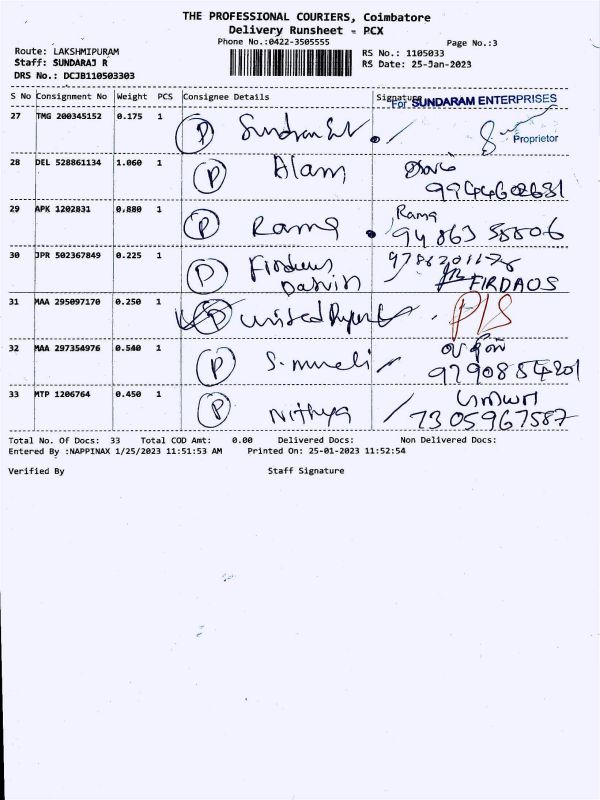 THE PROFESSIONAL COURIERS, Coimbatore
Delivery Runsheet - PCX
Phone No.:0422-3505555 Page No.:3
Route: LAKSHMIPURAM RS No.: 1105033
Staff: SUNDARAJ R RS Date: 25-Jan-2023
DRS No.: DCJB110503303
S No Consignment No Weight PCS Consignee Details Signature
For SUNDARAM ENTERPRISES
27 TMG 200345152 0.175 1 P
Proprietor
28 DEL 528861134 1.060 1 P Alam
29 APK 1202831 0.880 1 P Rama Rama
30 JPR 502367849 0.225 1 P
FIRDAOS
31 MAA 295097170 0.250 1 P United
32 MAA 297354976 0.540 1 P S. murali
33 MTP 1206764 0.450 1 P Nithya
7305967587
Total No. Of Docs: 33 Total COD Amt: 0.00 Delivered Docs: Non Delivered Docs:
Entered By :NAPPINAX 1/25/2023 11:51:53 AM Printed On: 25-01-2023 11:52:54
Verified By Staff Signature